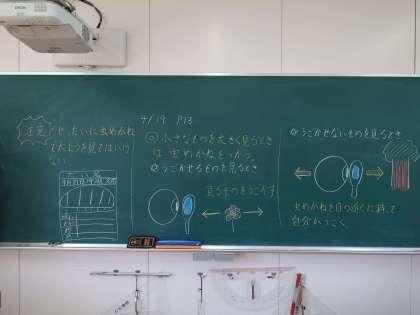 注意 ぜったいに虫めがね
で太ようを見てはいけ
ない。
4/19 P13
◎小さなものを大きく見るとき
は、虫めがねをつかう。
うごかせるものを見るとき
見るものをうごかす
うごかせないものを見るとき
虫めがねを目の近くに持って
自分がうごく。
EPSON